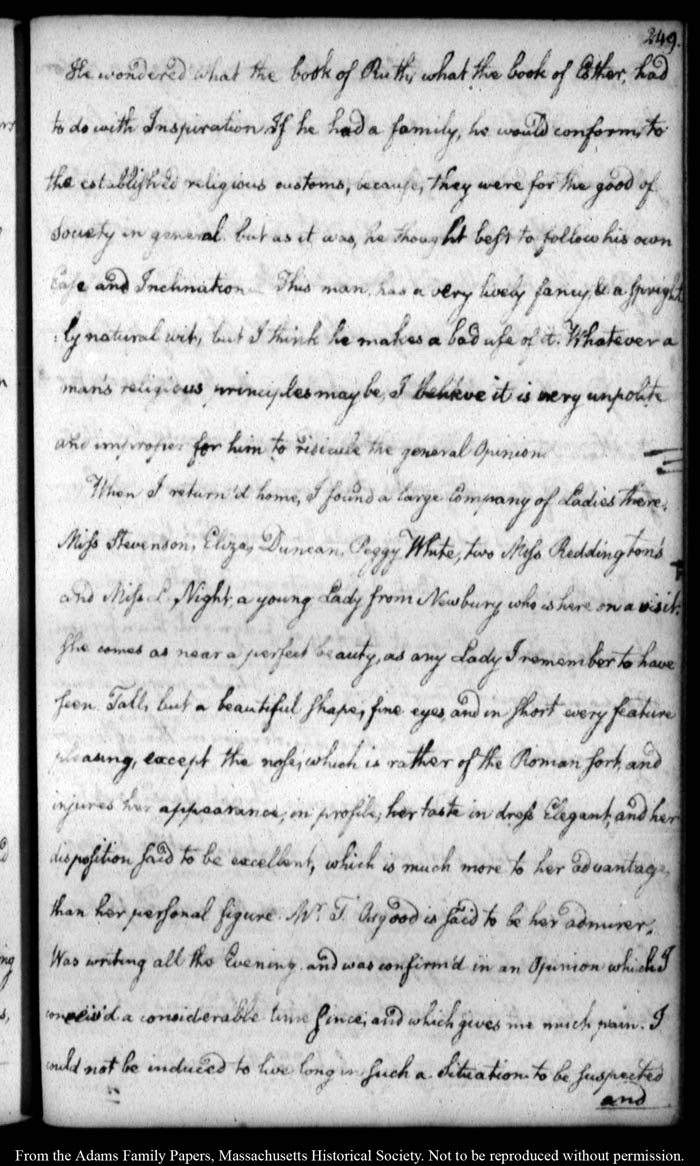 249.
He wondered what the book of Ruth, what the book of Esther, had
to do with Inspiration. If he had a family, he would conform, to
the established religious customs, because, they were for the good of
Society in general. but as it was, he thought best to follow his own
Ease and Inclination. This man, has a very lively fancy, & a spright
:ly natural wit, but I think he makes a bad use of it. Whatever a
man's religious principles may be, I believe it is very unpolite
and improper for him to ridicule the general Opinion.
When I return'd home, I found a large Company of Ladies there.
Miss Stevenson, Eliza, Duncan, Peggy White, two Miss Reddington's
and Miss Night, a young Lady from Newbury who is here on a visit.
She comes as near a perfect beauty, as any Lady I remember to have
seen. Tall, but a beautiful shape, fine eyes, and in short every feature
pleasing, except the nose, which is rather of the Roman sort, and
injures her appearance, in profile, her taste in dress Elegant, and her
disposition said to be excellent, which is much more to her advantage,
than her personal figure. Mr. T. Osgood is said to be her admirer.
Was writing all the Evening. and was confirm'd in an Opinion which I
conceiv'd a considerable time since, and which gives me much pain. I
could not be induced to live long in such a Situation. to be suspected
and
From the Adams Family Papers, Massachusetts Historical Society. Not to be reproduced without permission.